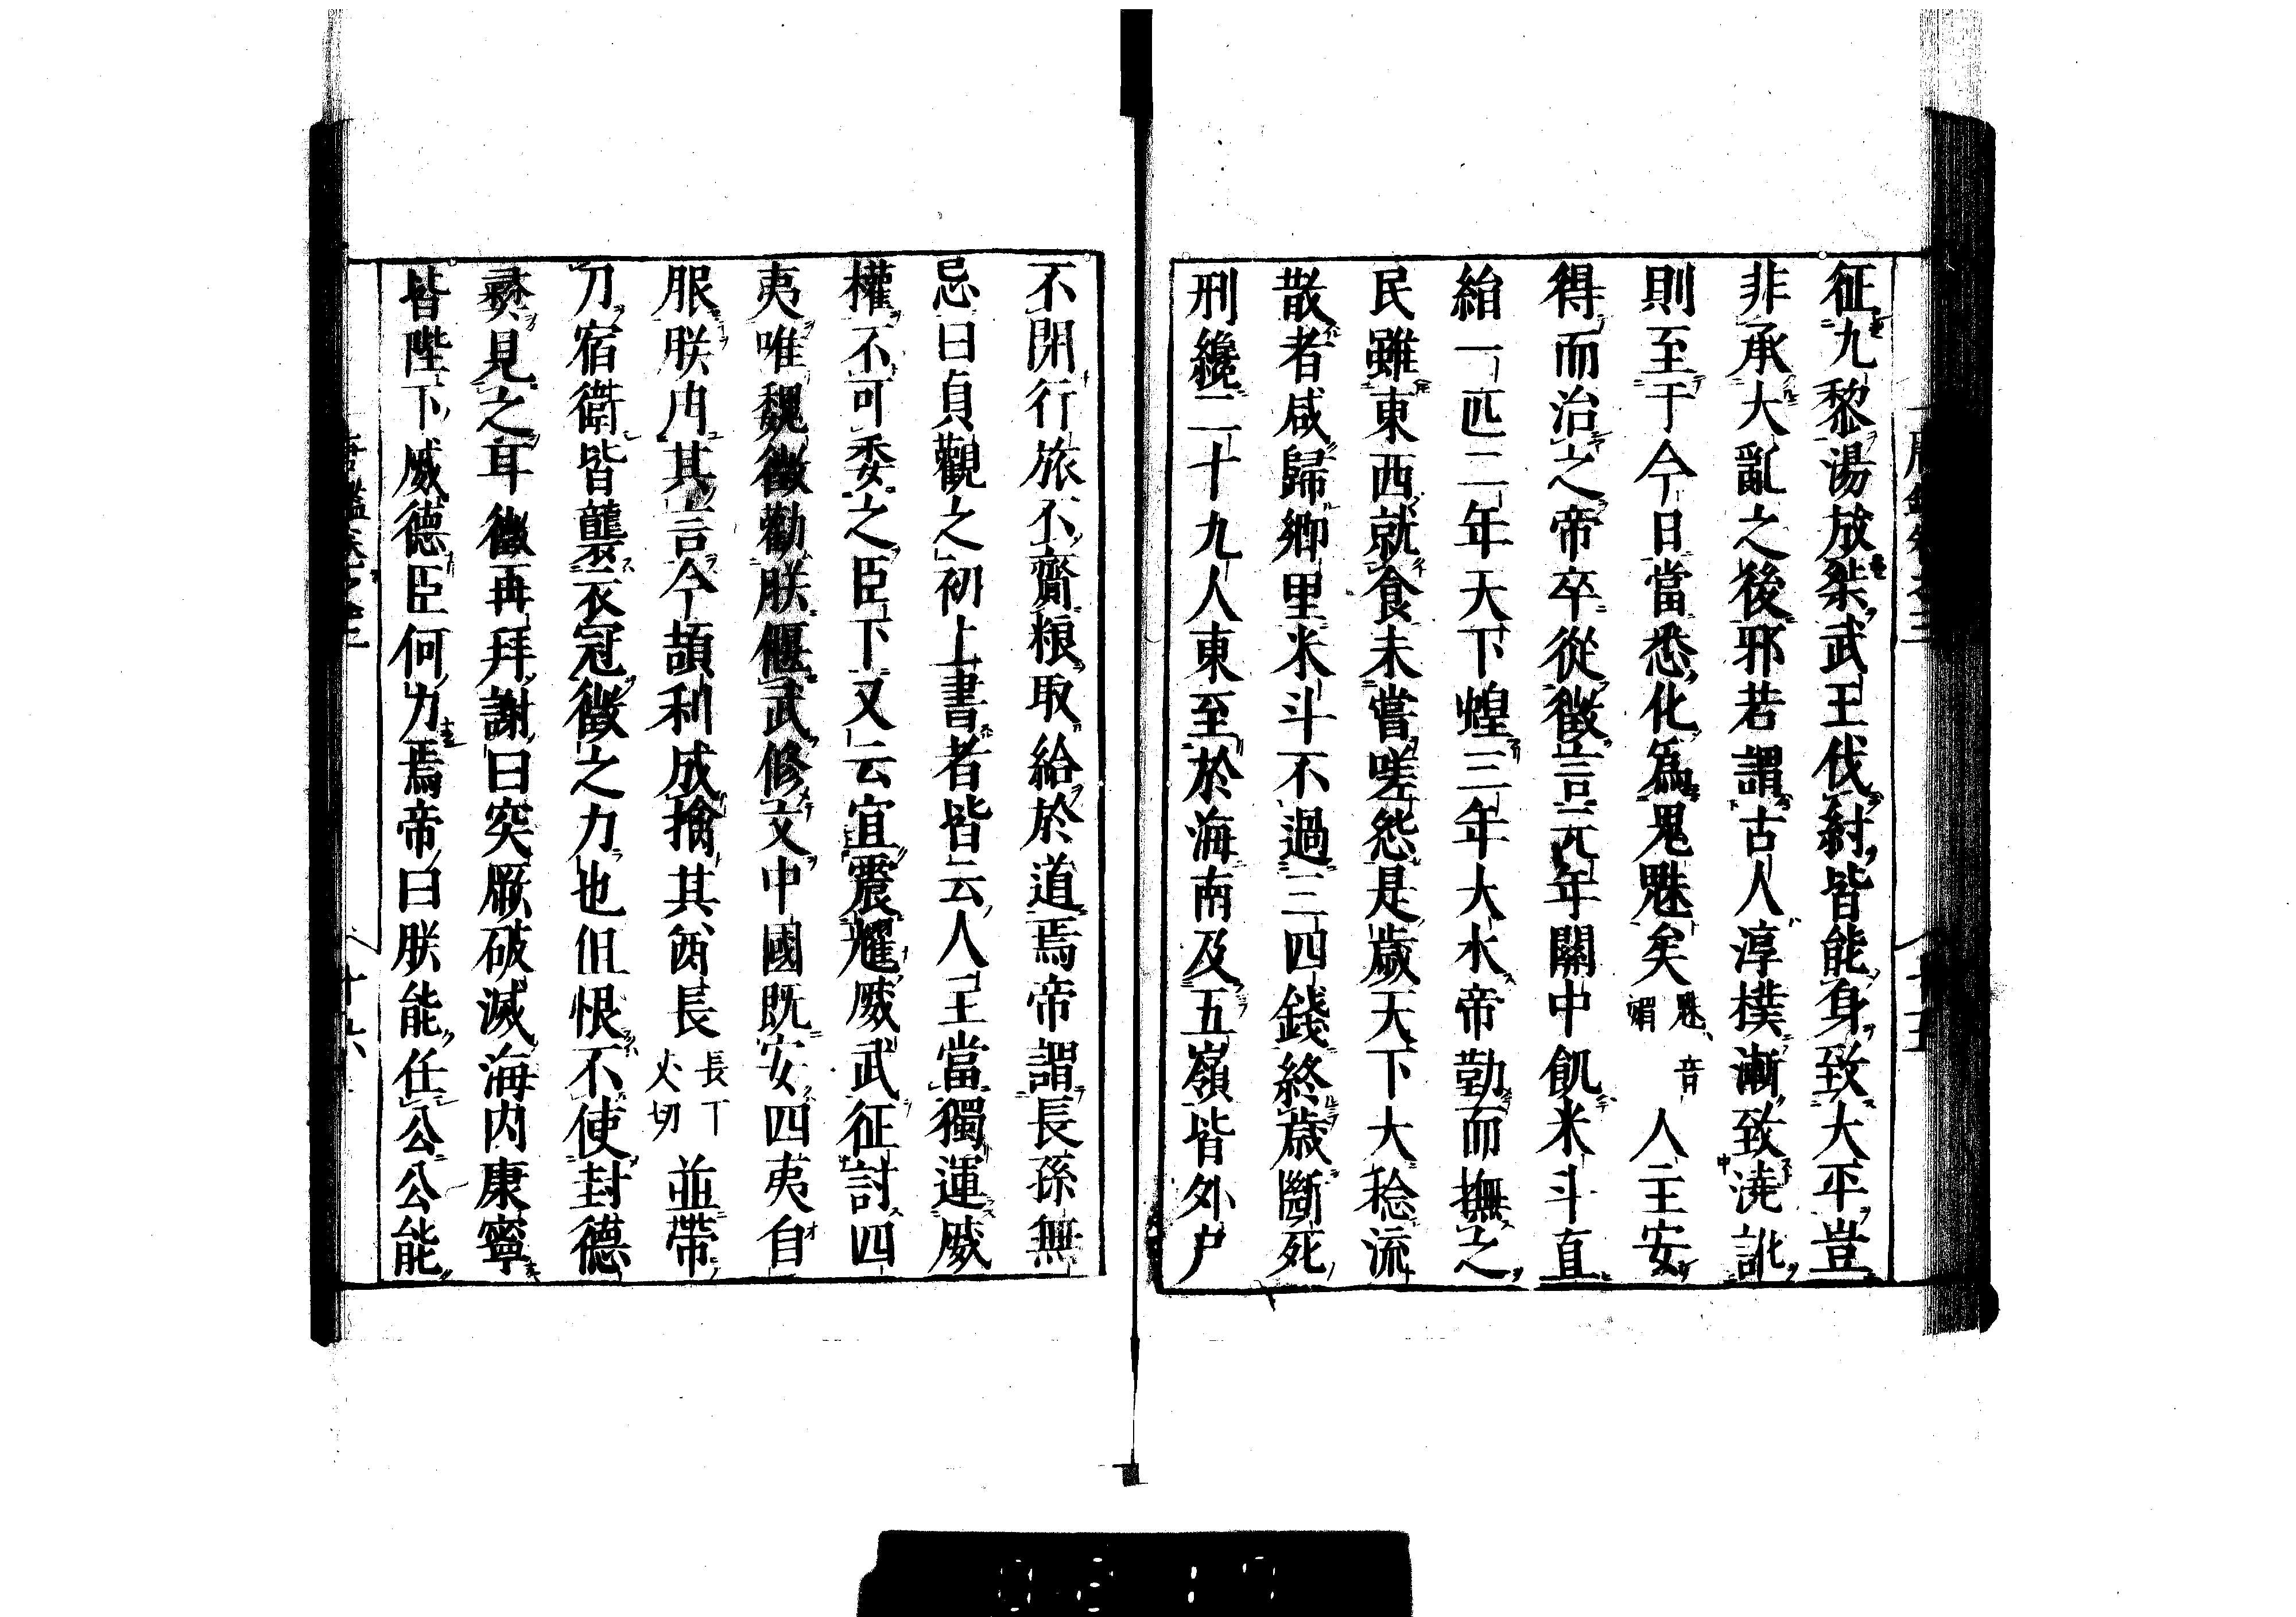 征九黎湯放桀武王伐紂皆能身致大平豈
非承大亂之後邪若謂古人淳樸漸致澆訛
則至于今日當悉化爲鬼魅矣魅音媚人主安
得而治之帝卒從徵言元年關中飢米斗直
絹一匹二年天下蝗三年大水帝勤而撫之
民雖東西就食未嘗嗟怨是歲天下大稔流
散者咸歸鄉里米斗不過三四錢終歲斷死
刑纔二十九人東至於海南及五嶺皆外戶
不閉行旅不齎粮取給於道焉帝謂長孫無
忌曰貞觀之初上書者皆云人主當獨運威
權不可委之臣下又云宜震耀威武征討四
夷唯魏徵勸朕偃武修文中國既安四夷自
服朕用其言今頡利成擒其酋長長丁丈切並帶
刀宿衛皆襲衣冠徵之力也但恨不使封德
彝見之耳徵再拜謝曰突厥破滅海内康寧
皆陛下威德臣何力焉帝曰朕能任公公能
唐鑑卷之三
十六